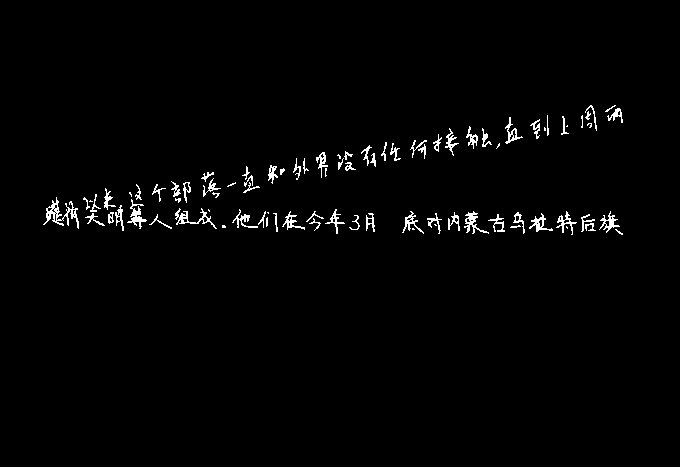 以来这个部落一直和外界没有任何接触,直到上周两
明等人组成.他们在今年3月 底对内蒙古乌拉特后旗